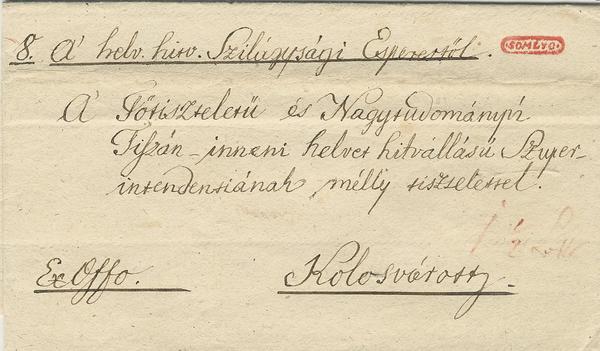 8. A' helv. hitv. Szilágysági Esperestől.
SOMLYO
A' Főtiszteletű és Nagytudományú
Tiszán-inneni helvet hitvallású Szuper-
intendentiának mélly tisztelettel.
Ex Offo.
Kolosvártt.